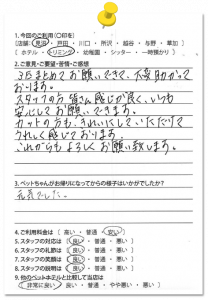 1.今回のご利用(○印を)
[店舗: 見沼 ・ 戸田 ・ 川口 ・ 所沢 ・ 越谷 ・ 与野 ・ 草加 ]
[ ホテル ・ トリミング ・ 幼稚園 ・ シッター ・ 一時預かり ]
2.ご意見・ご要望・苦情・ご感想
3匹まとめてお願いできて、大変助かって
おります。
スタッフの方 皆さん感じが良く、いつも
安心してお願いできます。
カットの方も、きれいにしていただけて
うれしく感じております。
これからもよろしくお願い致します。
3.ペットちゃんがお帰りになってからの様子はいかがでしたか?
元気でした。
4.ご利用料金は [ 高い ・ 普通 ・ 安い ]
5.スタッフの対応は [ 良い ・ 普通 ・ 悪い ]
6.スタッフの礼節は [ 良い ・ 普通 ・ 悪い ]
7.スタッフの笑顔は [ 良い ・ 普通 ・ 悪い ]
8.スタッフの説明は [ 良い ・ 普通 ・ 悪い ]
9.他のペットホテルと比較して当店は
[ 非常に良い ・ 良い ・ 普通 ・ やや悪い ・ 悪い ]